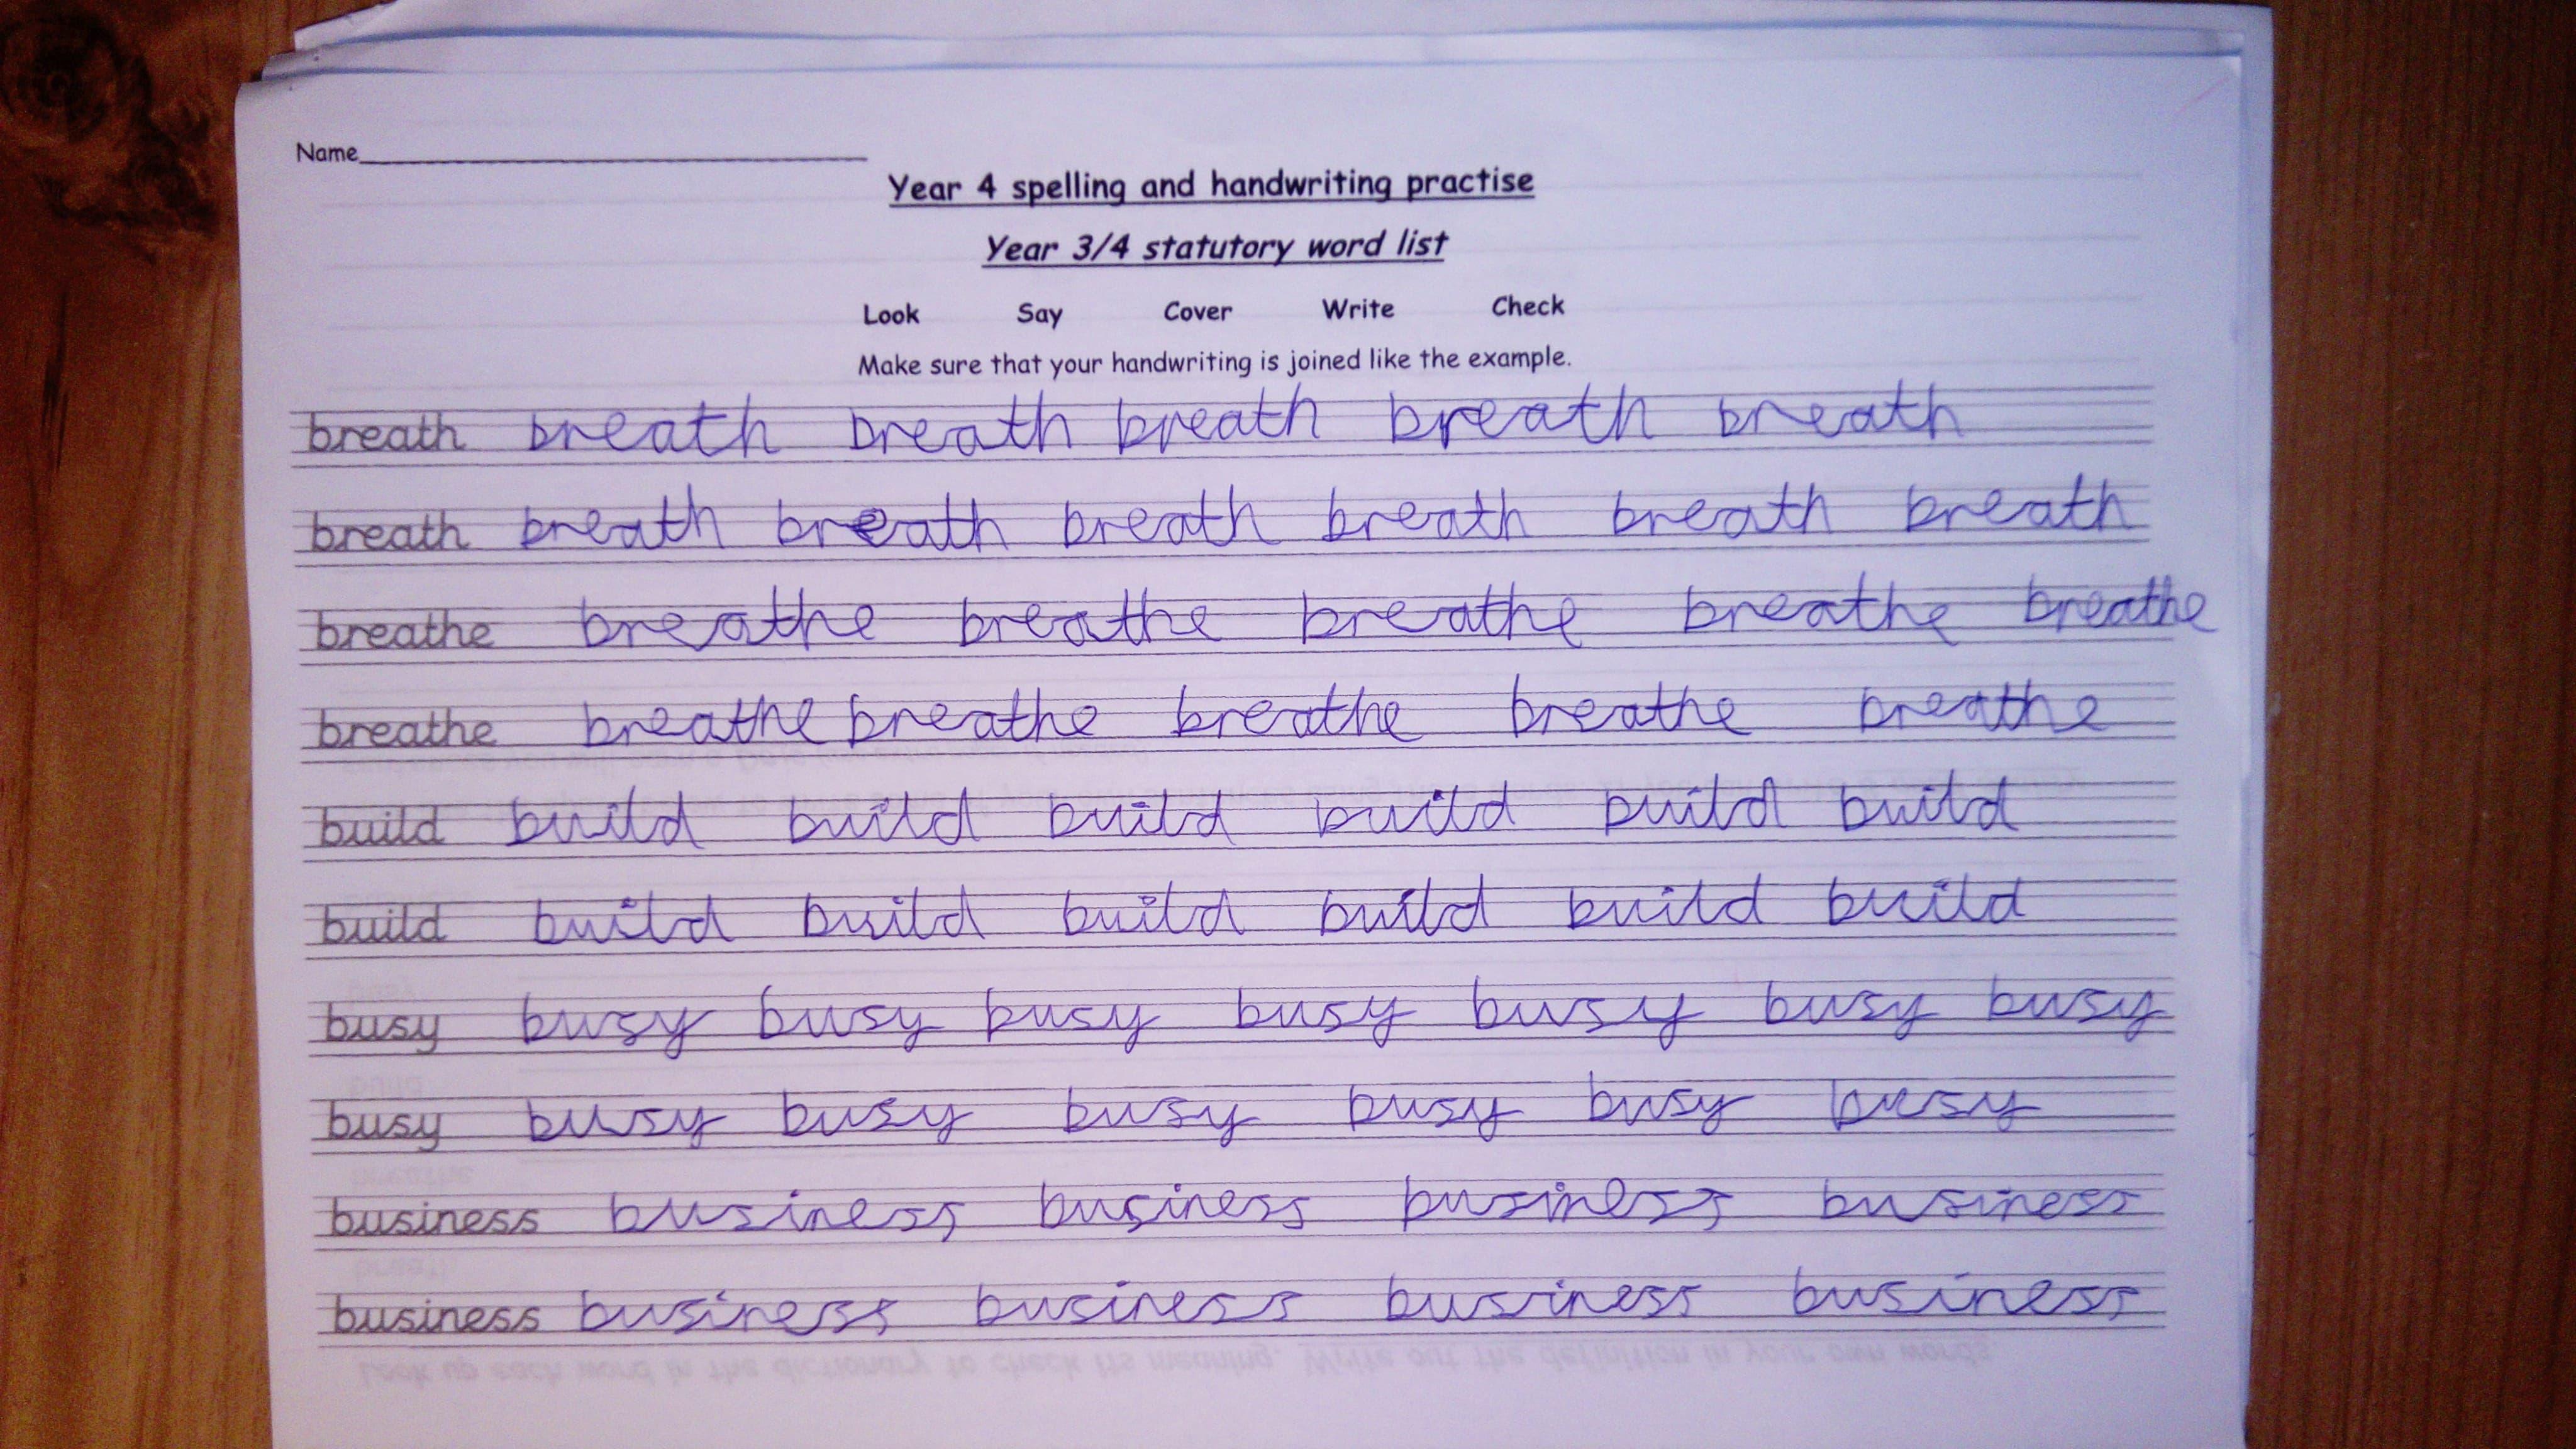 Name
Year 4 spelling and handwriting practise
Year 3/4 statutory word list
Look Say Cover Write Check
Make sure that your handwriting is joined like the example.
breath breath breath breath breath breath
breath breath breath breath breath breath breath
breathe breathe breathe breathe breathe breathe
breathe breathe breathe breathe breathe breathe
build build build build build build build
build build build build build build build
busy busy busy busy busy busy busy busy
busy busy busy busy busy busy busy
business business business business business
business business business business business
Look up each word in the dictionary to check its meaning. Write out the definition in your own words.